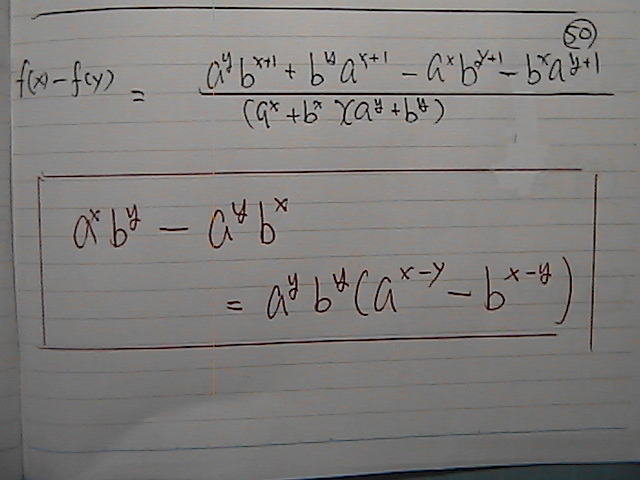 50
f(x) - f(y) = \frac{a^y b^{x+1} + b^y a^{x+1} - a^x b^{y+1} - b^x a^{y+1}}{(a^x + b^x)(a^y + b^y)}
a^x b^y - a^y b^x
= a^y b^y (a^{x-y} - b^{x-y})